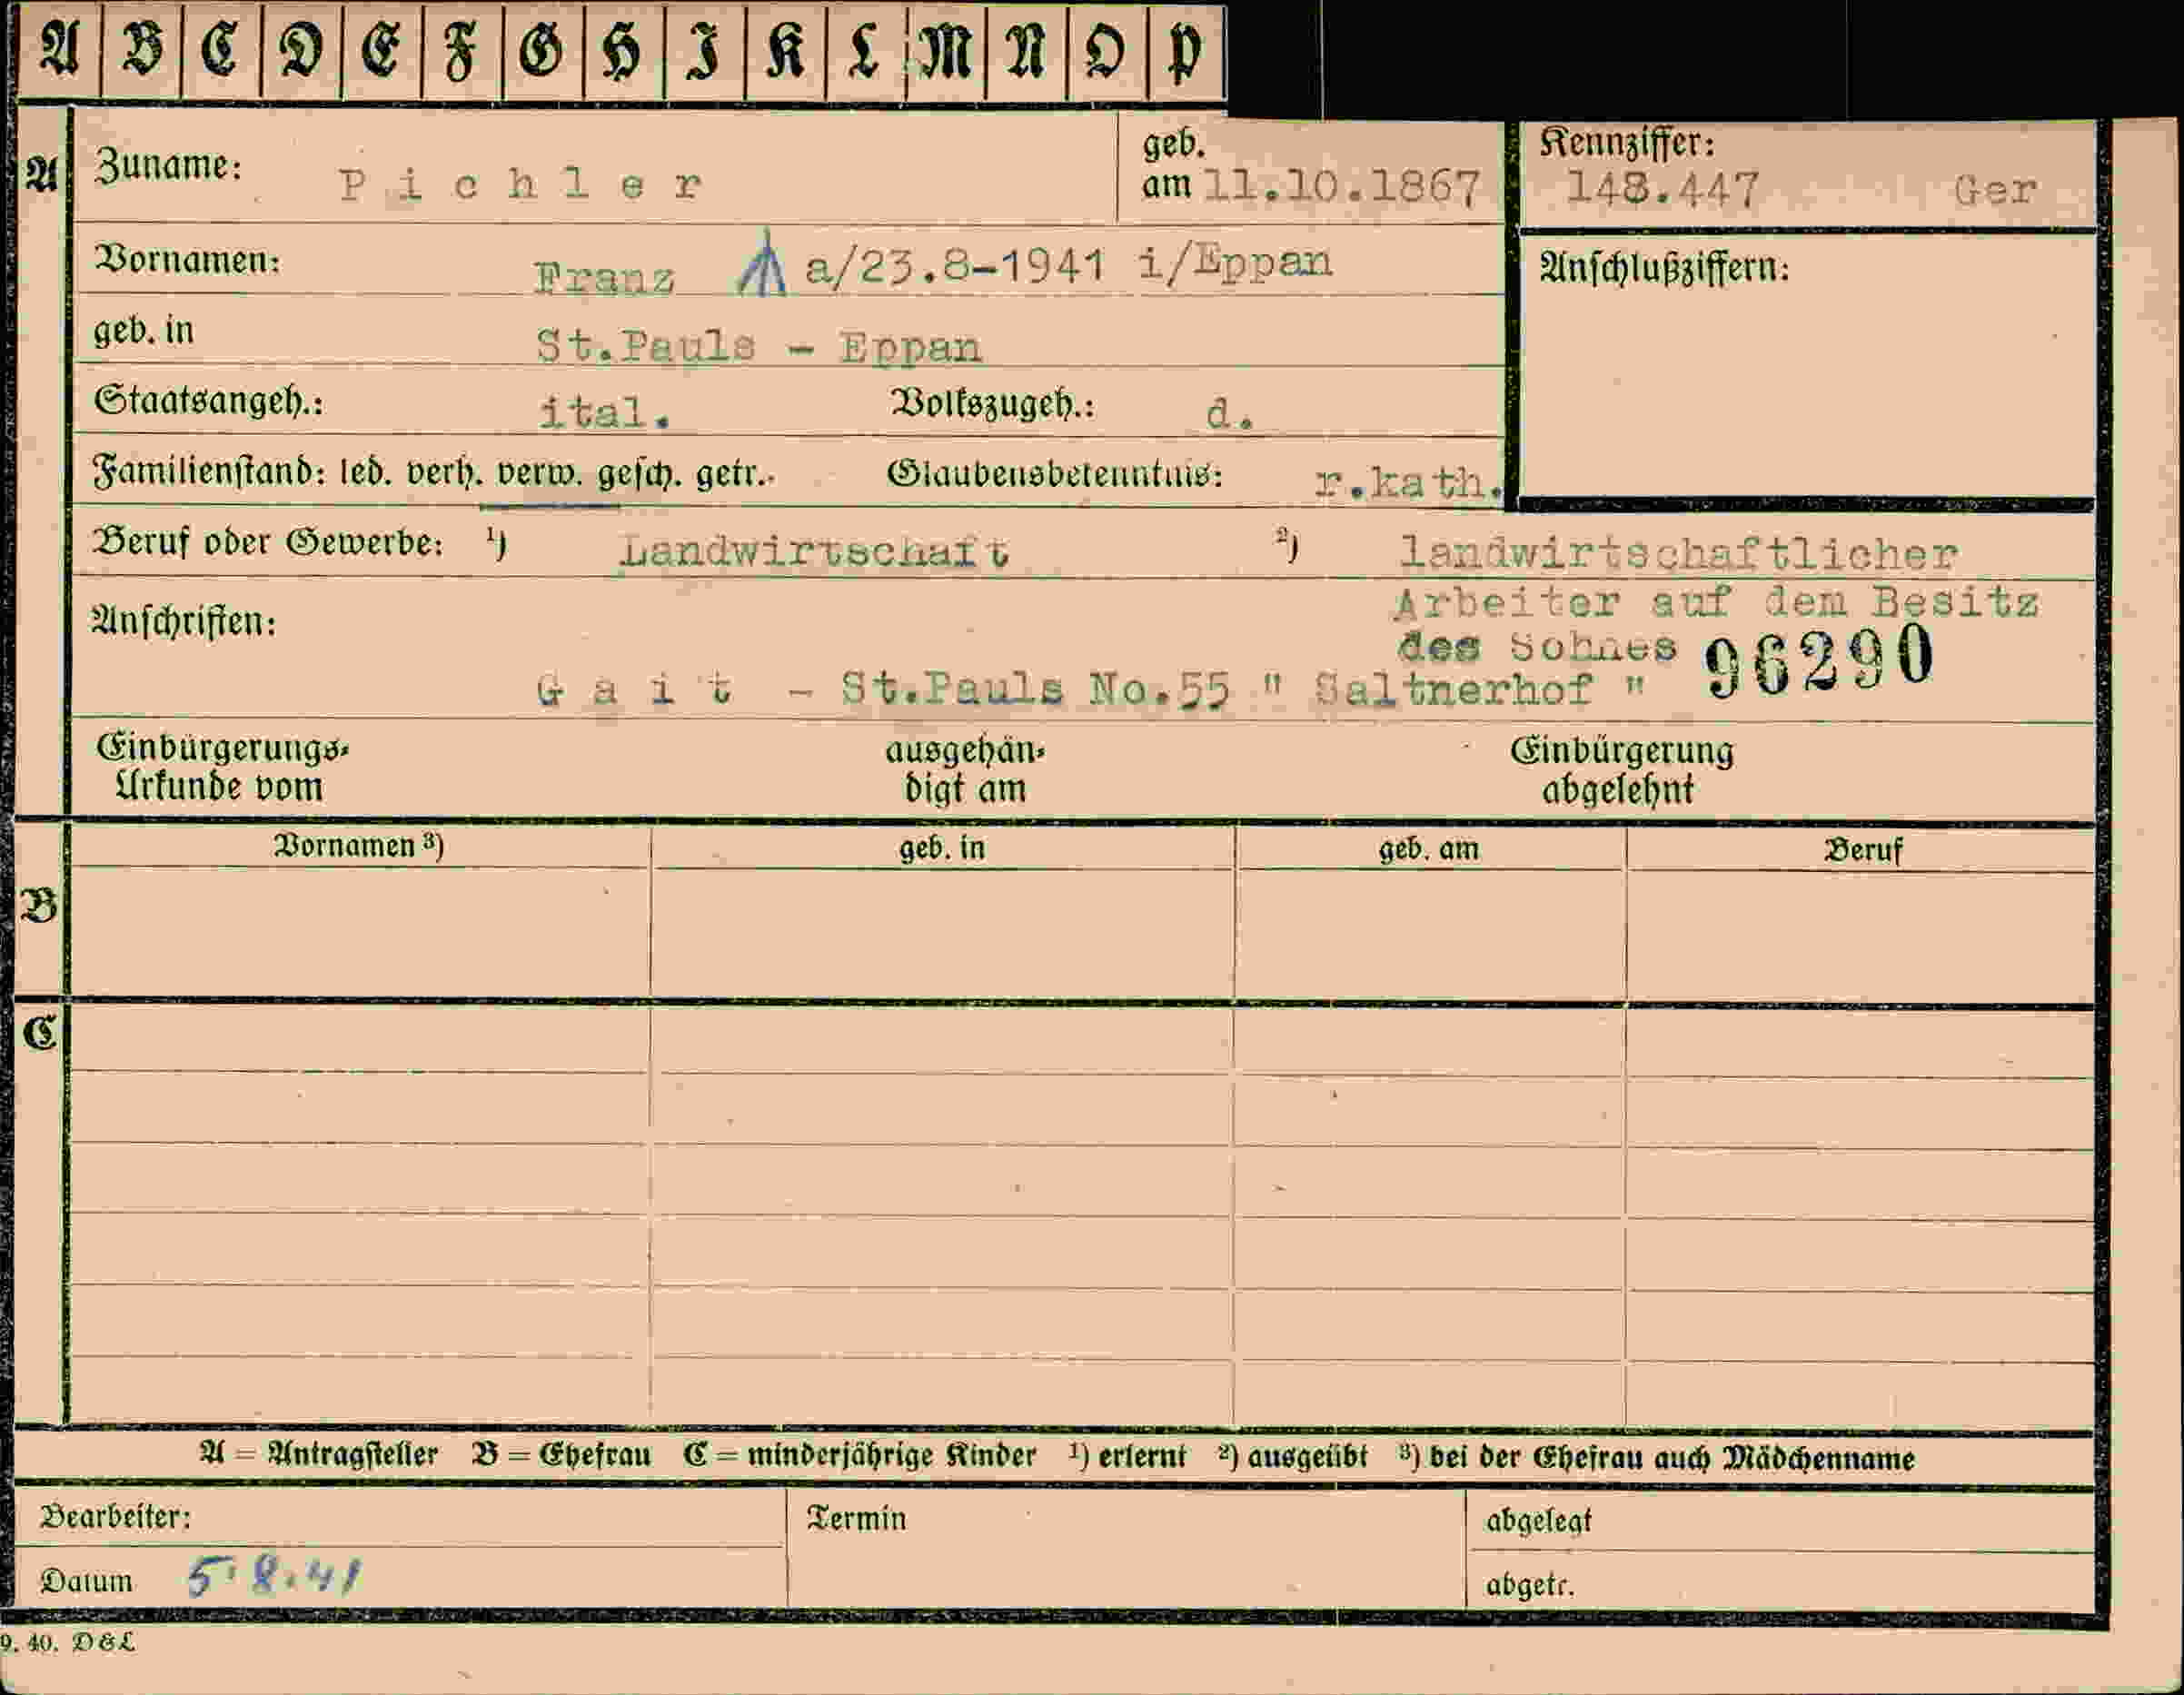 A B C D E F G H I K L M N O P
A Zuname: Pichler geb. am 11.10.1867 Kennziffer: 148.447 Ger
Vornamen: Franz a/23.8-1941 i/Eppan Anschlußziffern:
geb. in St.Pauls - Eppan
Staatsangeh.: ital. Volkszugeh.: d.
Familienstand: led. verh. verw. gesch. getr. Glaubensbekenntnis: r.kath.
Beruf oder Gewerbe: 1) Landwirtschaft 2) landwirtschaftlicher
Arbeiter auf dem Besitz
Anschriften: des Sohnes 96290
Gait - St.Pauls No.55 " Saltnerhof "
Einbürgerungs- ausgehän- Einbürgerung
Urkunde vom digt am abgelehnt
Vornamen 3) geb. in geb. am Beruf
B
C
A = Antragsteller B = Ehefrau C = minderjährige Kinder 1) erlernt 2) ausgeübt 3) bei der Ehefrau auch Mädchenname
Bearbeiter: Termin abgelegt
Datum 5.8.41 abgetr.
9. 40. D&L